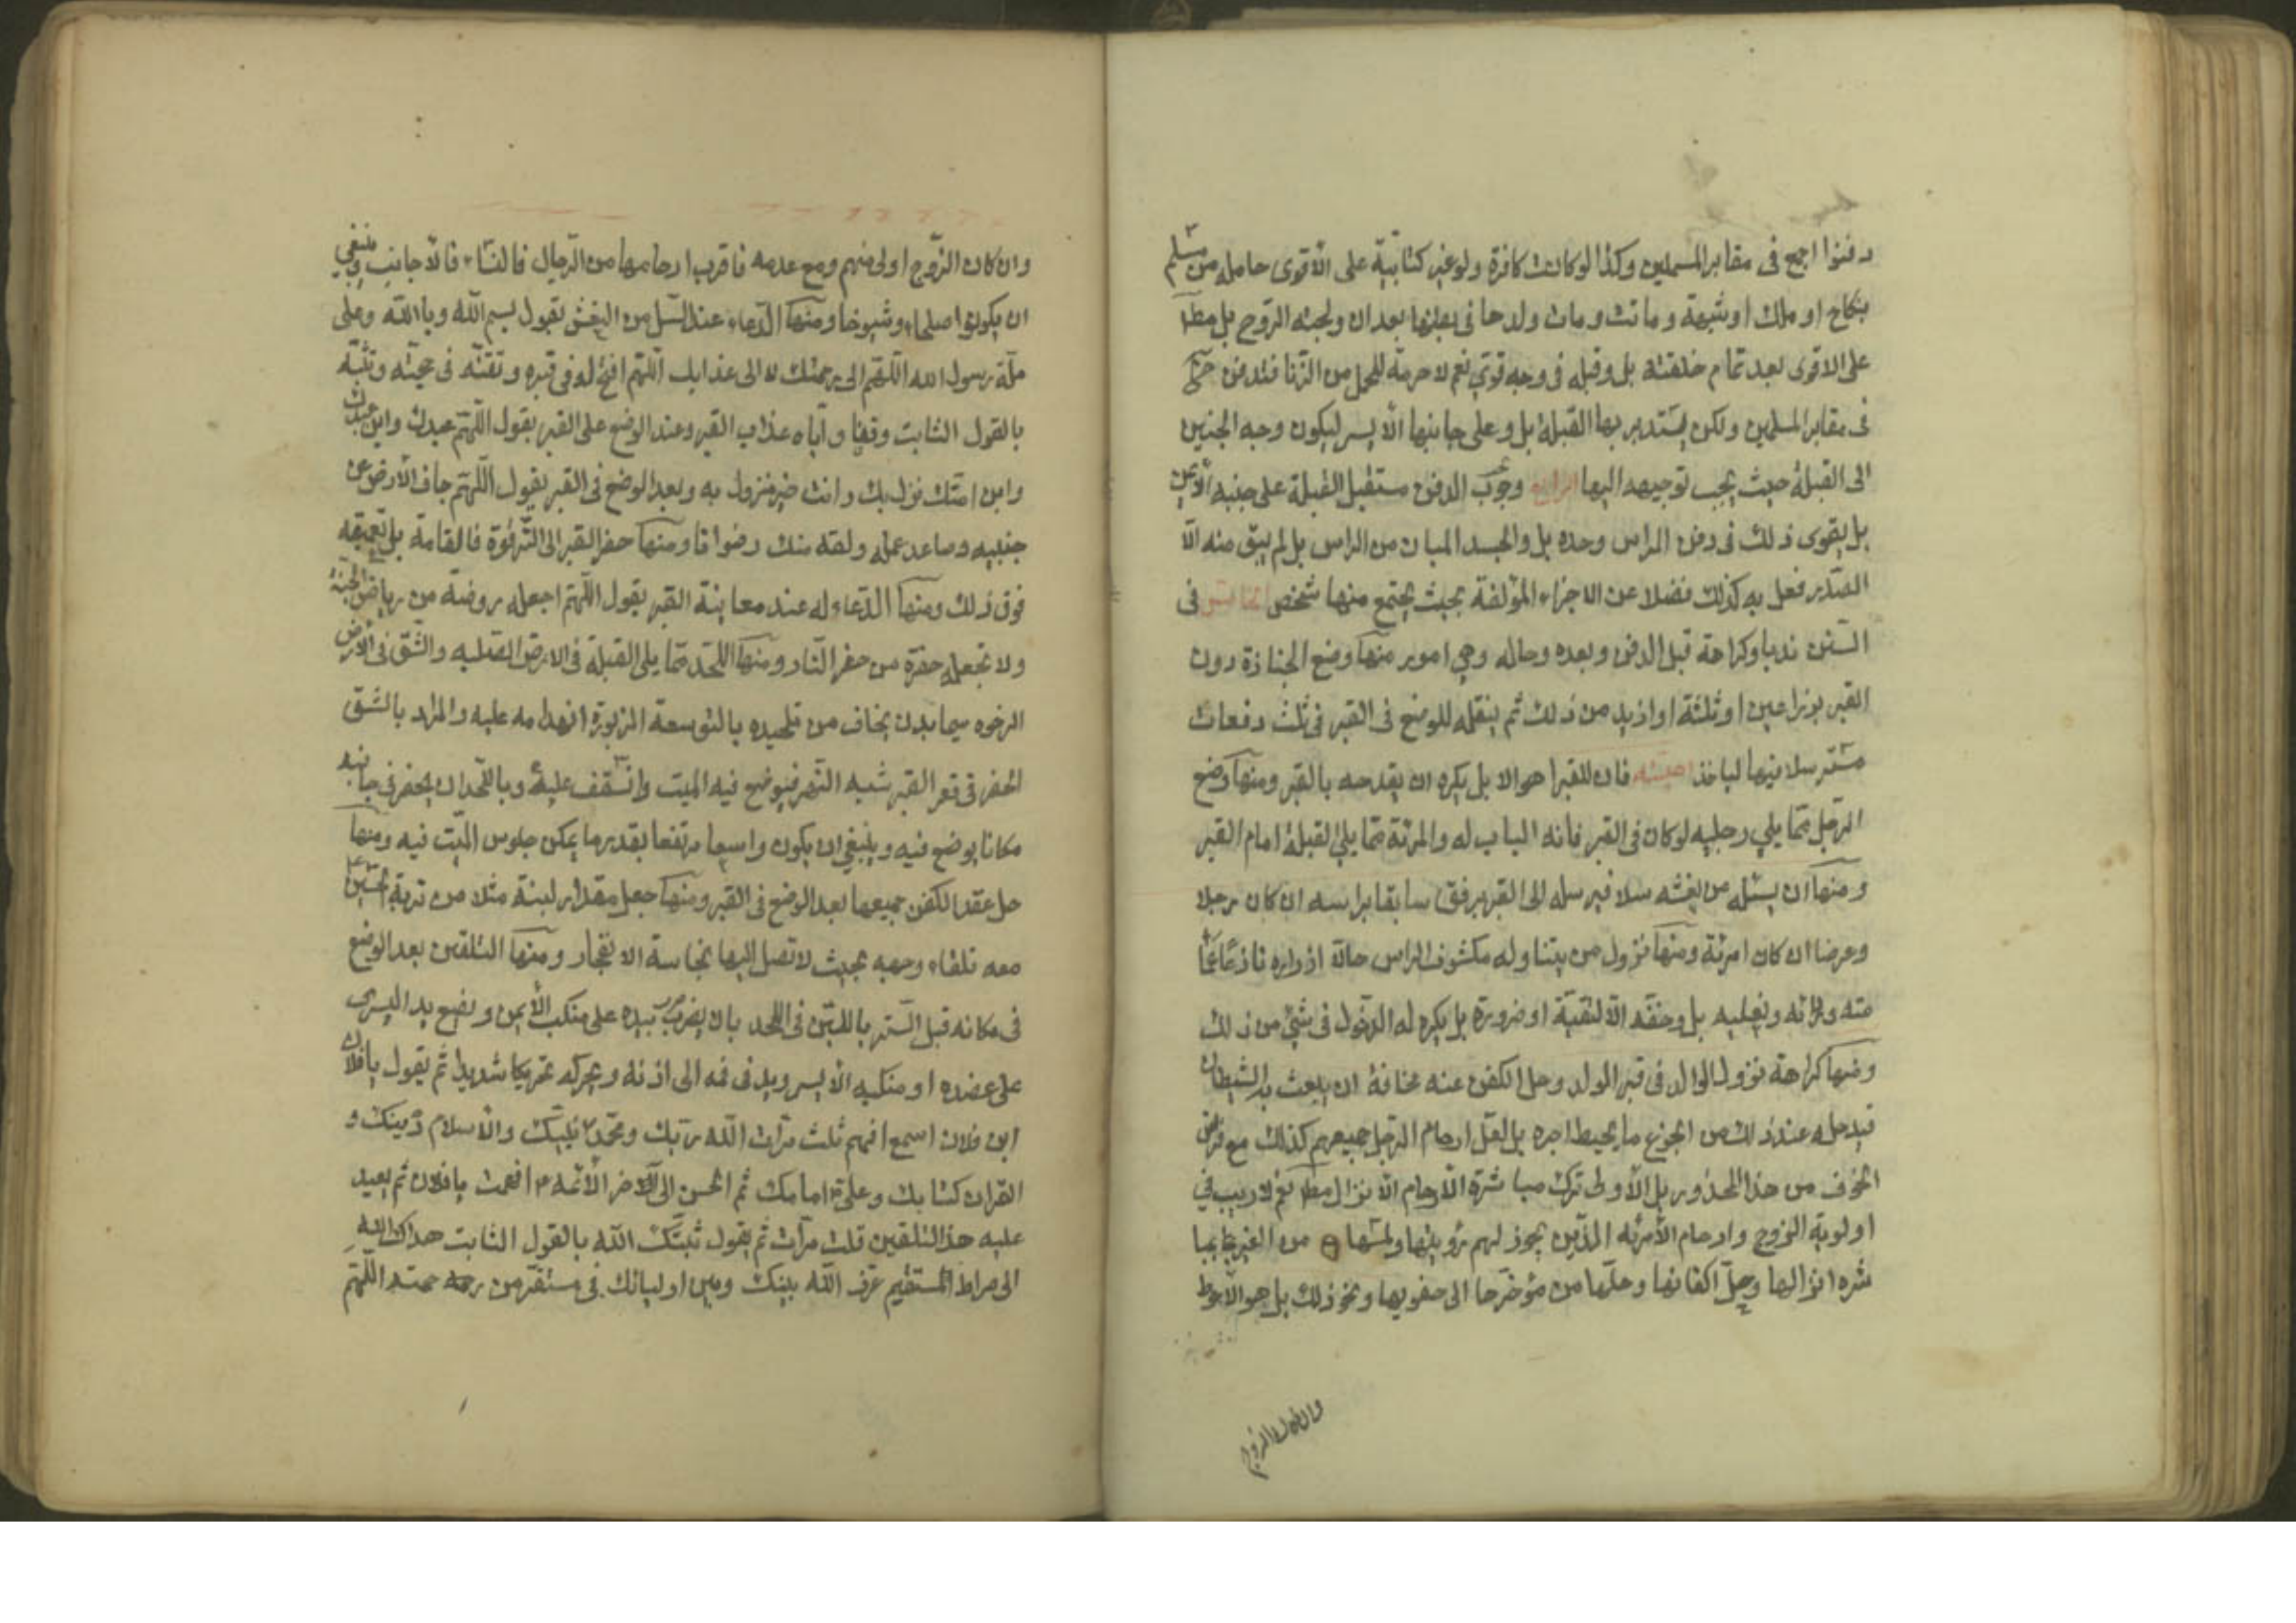 دفنوا اجمع فى مقابر المسلمين وكذا لو كانت كافرة ولو غير كتابية على الاقوى حامله من مسلم
بنكاح او ملك او شبهة وماتت ومات ولدها فى بطنها بعد ان ولجته الروح بل مطلقا
على الاقوى بعد تمام خلقته بل وقبله فى وجه قوى نعم لا حرمة للحمل من الزنا فتدفن
فى مقابر المسلمين ولكن يستدبر بها القبلة بل وعلى جانبها الايسر ليكون وجه الجنين
الى القبلة حيث يجب توجيهه اليها الرابع وجوب الدفن مستقبل القبلة على جنبه الايمن
بل يقوى ذلك فى دفن الراس وحده بل والجسد المبان من الراس بل لم يبق منه الا
الصدر فعل به كذلك فضلا عن الاجزاء المؤلفة بحيث يجتمع منها شخص الخامس فى
السنن ندبا وكراهة قبل الدفن وبعده وحاله وهى امور منها وضع الجنازة دون
القبر بذراعين او ثلثة او ازيد من ذلك ثم ينقله للوضع فى القبر فى ثلث دفعات
مترسلا فيها لياخذ اهبته فان للقبر اهوالا بل يكره ان يفدحه بالقبر ومنها وضع
الرجل مما يلى رجليه لو كان فى القبر فانه الباب له والمرئة مما يلى القبلة امام القبر
ومنها ان يسئله من نعشه سلا فيرسله الى القبر برفق سابقا براسه ان كان رجلا
وعرضا ان كان امرئة ومنها نزول من يتناوله مكشوف الراس حالا ازراره نازعا عما
مته وردائه ونعليه بل وخفه الا لتقية او ضرورة بل يكره له الدخول فى شئ من ذلك
ومنها كراهة نزول الوالد فى قبر الولد وحل الكفن عنه مخافة ان يلعب به الشيطان
فيدخله عند ذلك من الجزع ما يحيط اجره بل لعل ارحام الرجل جميعهم كذلك مع فرض
الخوف من هذا المحذور بل الاولى ترك مباشرة الارحام الانزال مطلقا نعم لا ريب فى
اولوية الزوج وارحام الامرئه الذين يجوز لهم رؤيتها ولمسها من الغير فيما
شره انزالها وحل اكفانها وحملها من مؤخرها الى حقويها ونحو ذلك بل هو الاحوط
وان كان الزوج
وان كان الزوج اولى منهم ومع عدمه فاقرب ارحامها من الرجال فالنساء فالاجانب وينبغى
ان يكونوا صلحاء وشيوخا ومنها الدعاء عند السل من النعش بقول بسم الله وبالله وعلى
ملة رسول الله اللهم الى رحمتك لا الى عذابك اللهم افسح له فى قبره ولقنه فى حجته وثبته
بالقول الثابت وقنا واياه عذاب القبر وعند الوضع على القبر بقول اللهم عبدك وابن عبدك
وابن امتك نزل بك وانت خير منزول به وبعد الوضع فى القبر بقول اللهم جاف الارض عن
جنبيه وصاعد عمله ولقه منك رضوانا ومنها حفر القبر الى الترقوة فالقامة بل تعميقه
فوق ذلك ومنها الدعاء له عند معاينة القبر بقول اللهم اجعله روضة من رياض الجنة
ولا تجعله حفرة من حفر النار ومنها اللحد مما يلى القبلة فى الارض الصلبه والشق فى الارض
الرخوه سيما بدن يخاف من تلحيده بالتوسعة المزبورة انهدامه عليه والمراد بالشق
الحفر فى قعر القبر شبه النهر فيوضع فيه الميت وانسقف عليه وباللحد ان يحفر فى جانبه
مكانا يوضع فيه وينبغى ان يكون واسعا مرتفعا بقدر ما يمكن جلوس الميت فيه ومنها
حل عقد الكفن جميعها بعد الوضع فى القبر ومنها جعل مقدار لبنة مثلا من تربة الحسين
معه تلقاء وجهه بحيث لا تصل اليها نجاسة الانفجار ومنها التلقين بعد الوضع
فى مكانه قبل الستر باللبن فى اللحد بان يضرب بيده على منكب الايمن ويضع يد اليسرى
على عضده او منكبه الايسر ويدنى فمه الى اذنه ويحركه تحريكا شديدا ثم يقول يا فلان
ابن فلان اسمع افهم ثلث مرات الله ربك ومحمد نبيك والاسلام دينك و
القران كتابك وعلى امامك ثم الحسن الى اخر الائمه افهمت يا فلان ثم يعيد
عليه هذا التلقين ثلث مرات ثم يقول ثبتك الله بالقول الثابت هداك الله
الى صراط المستقيم عرف الله بينك وبين اوليائك فى مستقر من رحمته اللهم